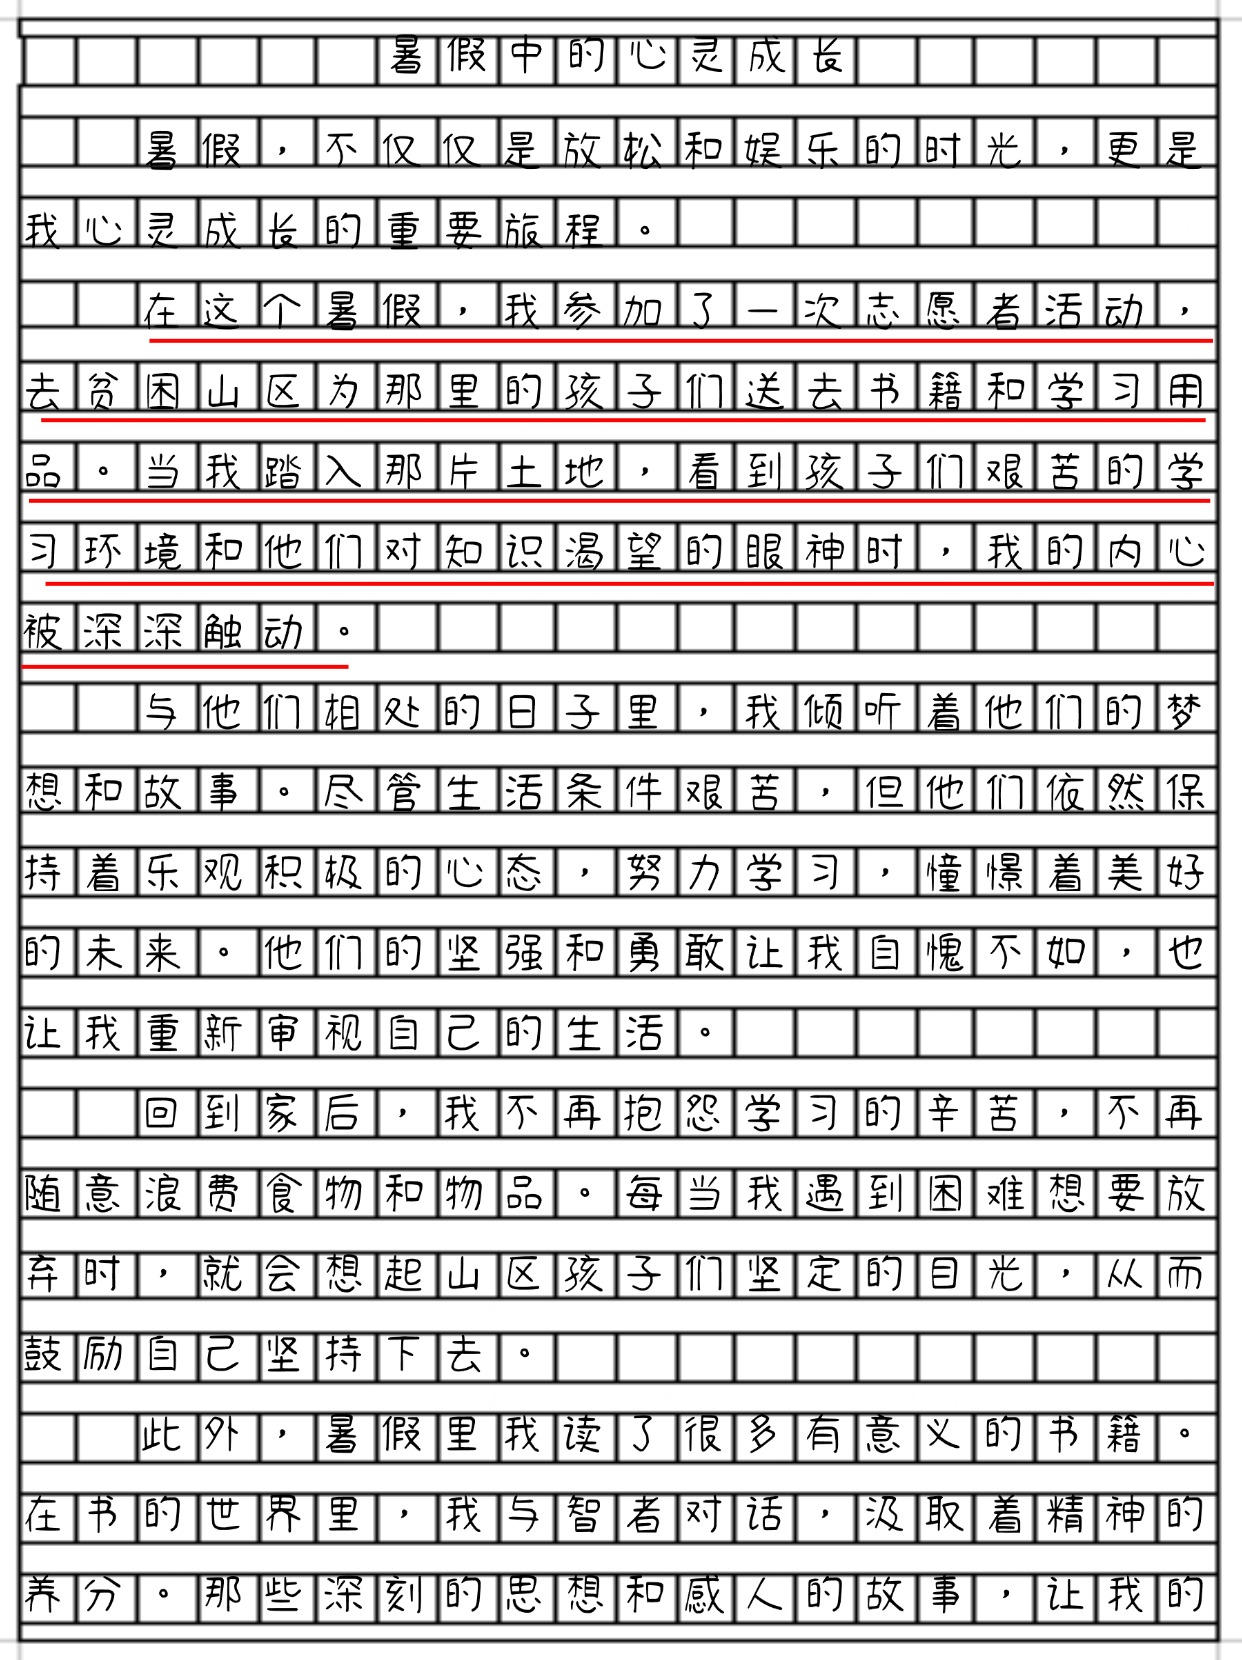 暑假中的心灵成长
暑假，不仅仅是放松和娱乐的时光，更是
我心灵成长的重要旅程。
在这个暑假，我参加了一次志愿者活动，
去贫困山区为那里的孩子们送去书籍和学习用
品。当我踏入那片土地，看到孩子们艰苦的学
习环境和他们对知识渴望的眼神时，我的内心
被深深触动。
与他们相处的日子里，我倾听着他们的梦
想和故事。尽管生活条件艰苦，但他们依然保
持着乐观积极的心态，努力学习，憧憬着美好
的未来。他们的坚强和勇敢让我自愧不如，也
让我重新审视自己的生活。
回到家后，我不再抱怨学习的辛苦，不再
随意浪费食物和物品。每当我遇到困难想要放
弃时，就会想起山区孩子们坚定的目光，从而
鼓励自己坚持下去。
此外，暑假里我读了很多有意义的书籍。
在书的世界里，我与智者对话，汲取着精神的
养分。那些深刻的思想和感人的故事，让我的